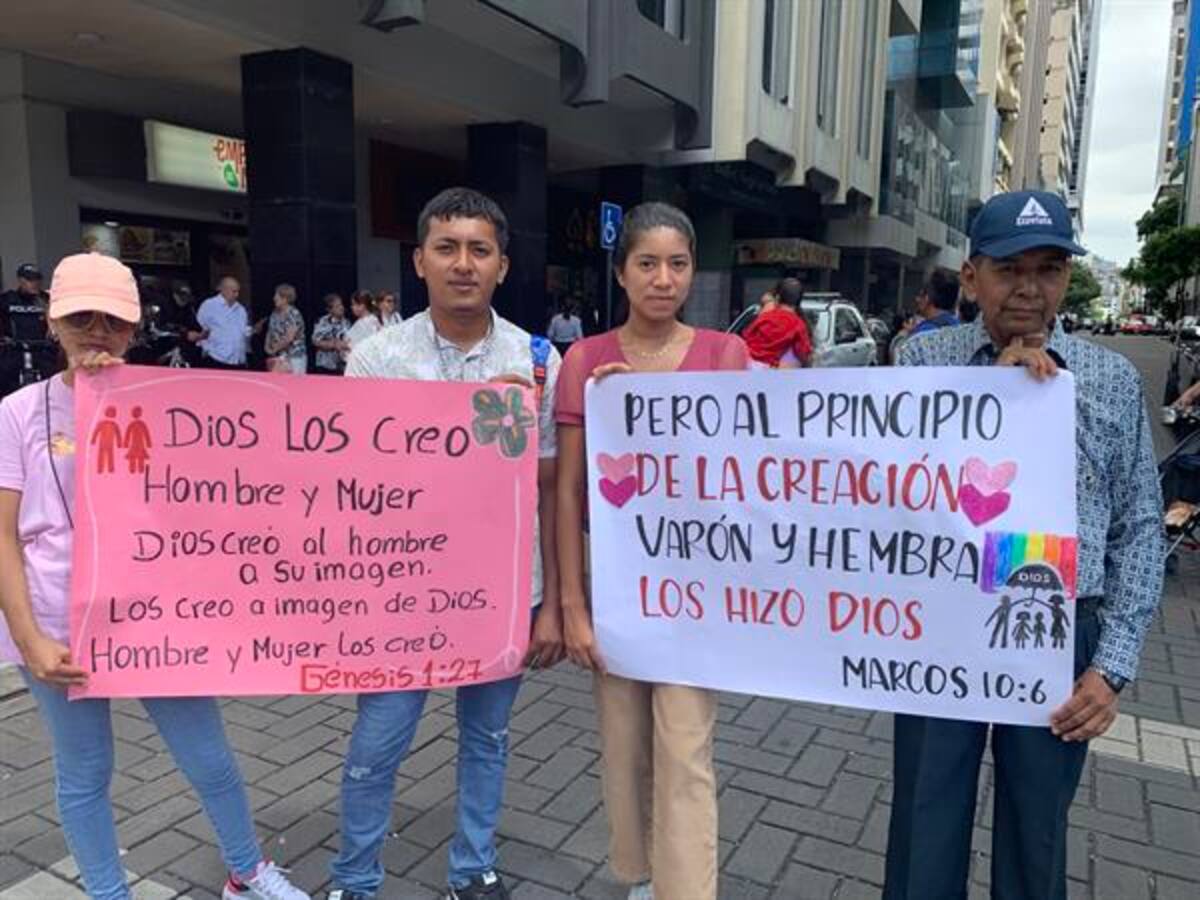 Dios Los Creo
Hombre y Mujer
Dios creó al hombre
a su imagen.
Los creo a imagen de Dios.
Hombre y Mujer los creó.
Génesis 1:27
PERO AL PRINCIPIO
DE LA CREACIÓN
VARÓN Y HEMBRA
LOS HIZO DIOS
DIOS
MARCOS 10:6